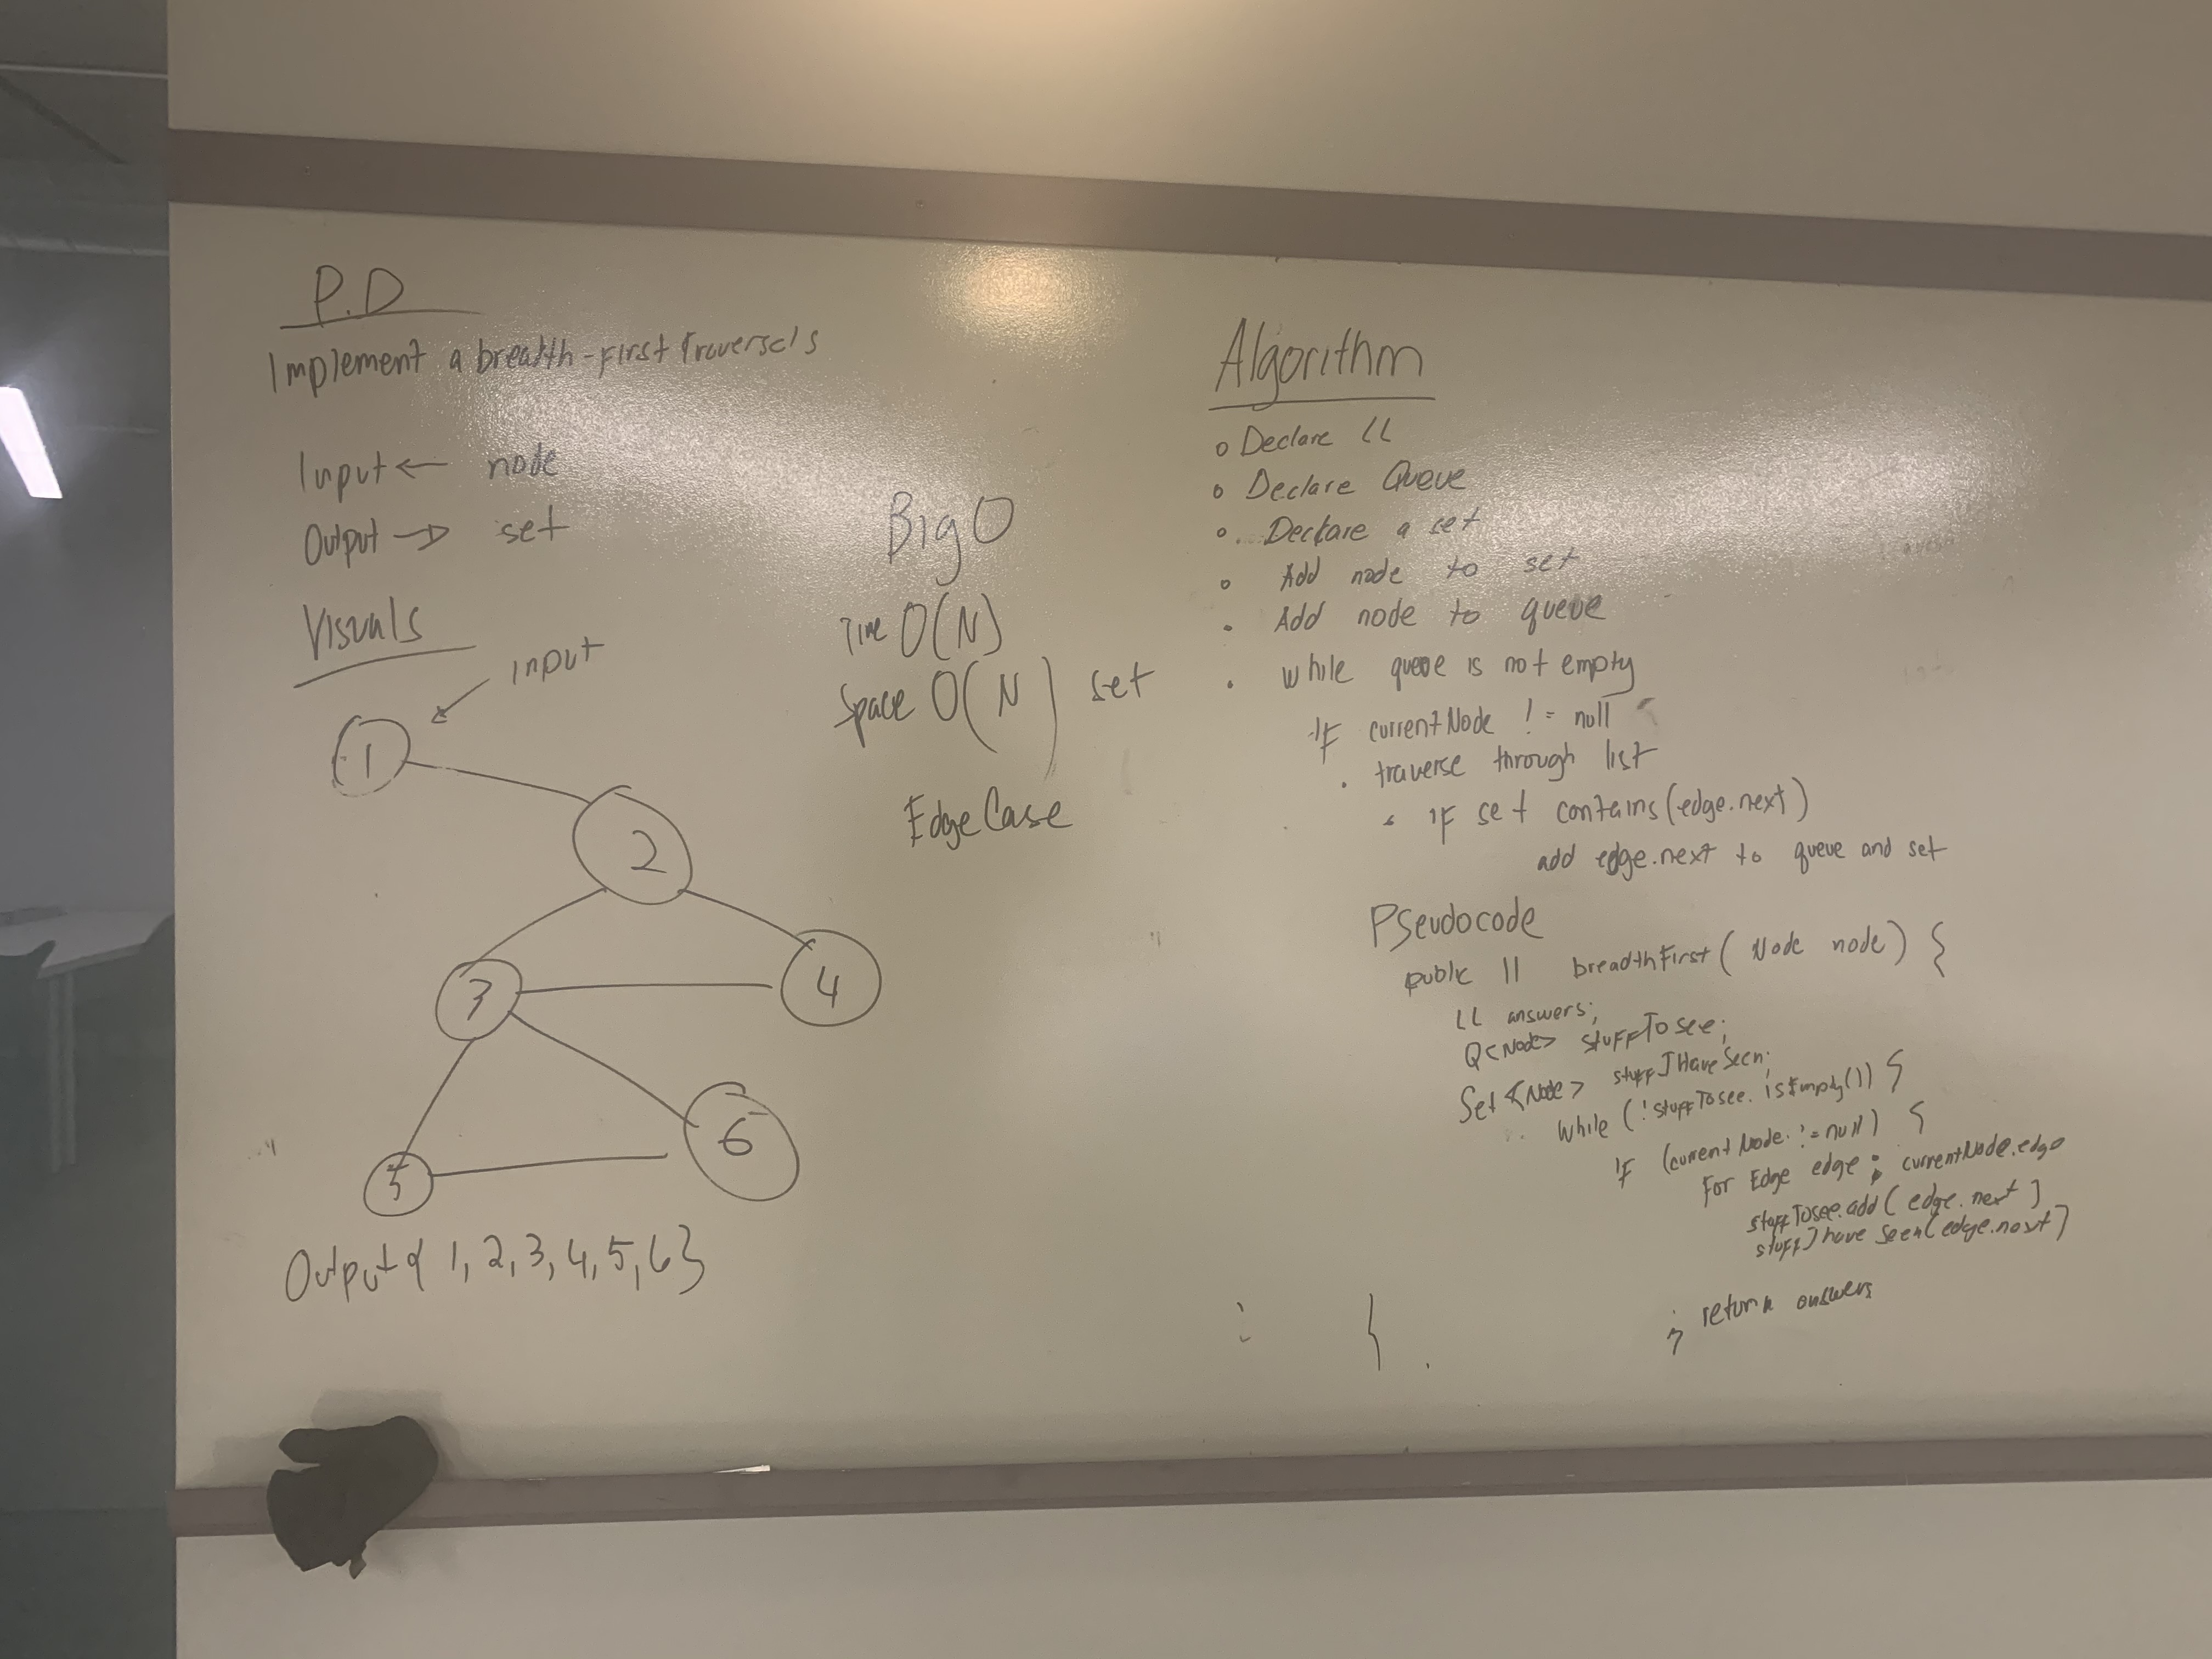 P.D
Implement a breadth-first Traversels
Input ← node
Output → set
Visuals
input
1
2
3
4
5
6
Output { 1, 2, 3, 4, 5, 6 }
Big O
Time O(N)
Space O(N) set
Edge Case
Algorithm
Declare LL
Declare Queue
Declare a set
Add node to set
Add node to queue
while queue is not empty
if currentNode != null
traverse through list
if set contains(edge.next)
add edge.next to queue and set
Pseudocode
public ll breadthFirst( Node node) {
LL answers;
Q<Node> stuffTosee;
Set <Node> stuffIHaveSeen;
while (!stuffTosee.isEmpty()) {
if (currentNode != null) {
for Edge edge : currentNode.edge
stuffTosee.add( edge.next )
stuffIhaveSeen( edge.next )
return answers